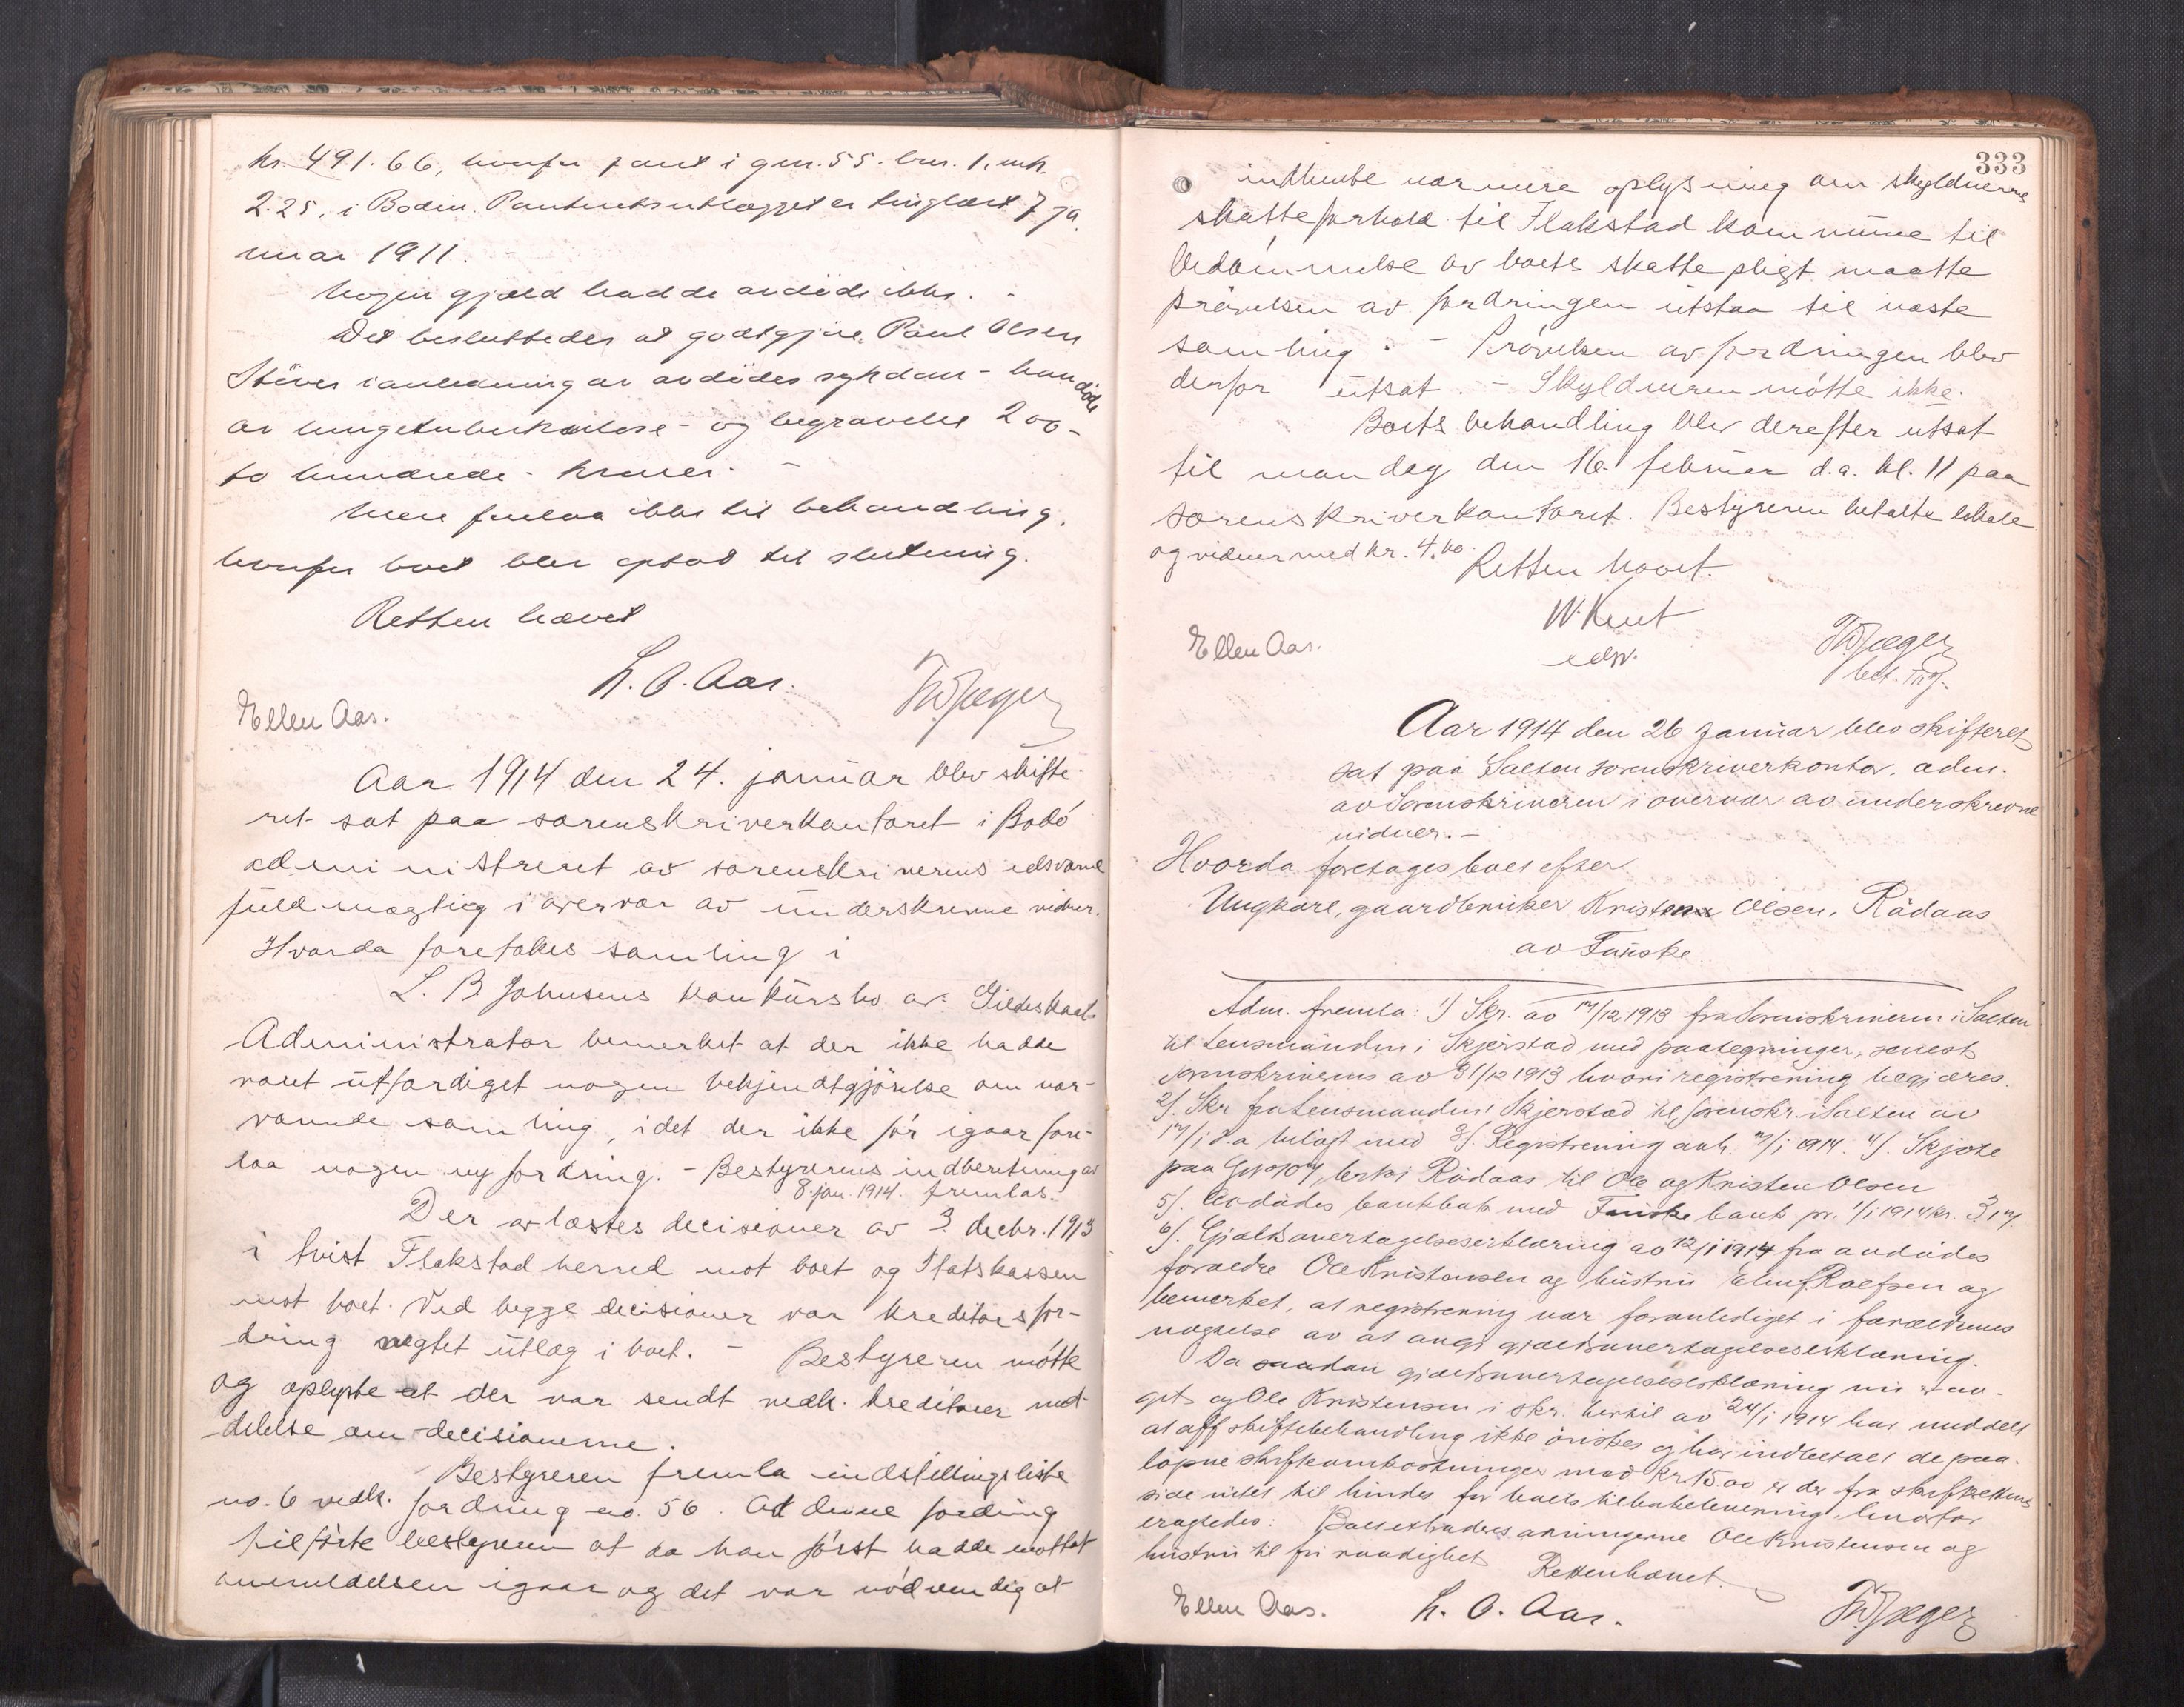 kr. 491.66, hvorfor pant i gnr. 55. brn. 1, mk.
2.25, i Bodin. Panteretsutlægget er tinglæst 7 ja-
nuar 1911. -
Nogen gjæld hadde avdöde ikke. -
Det besluttedes at godtgjöre Paul Olsen
Stöver i anledning av avdödes sykdom - han döde
av lungetuberkulose - og begravelse 200 -
to hundrede - kroner. -
Mere forelaa ikke til behandling,
hvorfor boet blev optat til slutning.
Retten hævet
L. O. Aas.
Ellen Aas. ThJæger
Aar 1914 den 24. januar blev skifte-
ret sat paa sorenskriverkontoret i Bodö
administreret av sorenskriverens edsvorne
fuldmægtig i overvær av underskrevne vidner.
Hvorda foretokes samling i
L. B. Johnsens konkursbo av Gildeskaal.
Administrator bemerket at der ikke hadde
været utfærdiget nogen bekjendtgjörelse om nær-
værende samling, idet der ikke för igaar fore-
laa nogen ny fordring. - Bestyrerens indberetning av
8. jan. 1914. fremlas.
Der avlæstes decisioner av 3. decbr. 1913
i tvist Flakstad herred mot boet og Statskassen
mot boet. Ved begge decisioner var kreditors for-
dring nægtet utlæg i boet. - Bestyreren mötte
og oplyste at der var sendt vedk. kreditorer med-
delelse om decisionerne.
Bestyreren fremla indstillingsliste
no. 6 vedk. fordring no. 56. Ad denne fordring
tilförte bestyreren at da han först hadde mottat
anmeldelsen igaar og det var nödvendig at
333
indhente nærmere oplysning om skyldnerens
skatteforhold til Flakstad kommune til
bedömmelse av boets skattepligt maatte
prövelsen av fordringen utstaa til næste
samling. - Prövelsen av fordringen blev
derfor utsat. - Skyldneren mötte ikke.
Boets behandling blev derefter utsat
til mandag den 16. februar d.a. kl. 11 paa
sorenskriverkontoret. Bestyreren betalte lokale
og vidner med kr. 4.40. Retten hævet.
W. Knut
edsv.
Ellen Aas. ThJæger
Aar 1914 den 26 januar blev skifteret
sat paa Salten sorenskriverkontor, adm.
av Sorenskriveren i overvær av underskrevne
vidner. -
Hvorda foretages boet efter
Ungkarl, gaardbruker Kristen Olsen, Rödaas
av Fauske.
Adm. fremla: 1) Skr. av 17/12 1913 fra Sorenskriveren i Salten
til Lensmanden i Skjerstad med paategninger, senest
sorenskriverens av 31/12 1913 hvori registrering begjæres.
2). Skr fra Lensmanden i Skjerstad til sorenskr. i Salten av
17/1 d.a. bilagt med 3). Registrering avh. 1914. 4). Skjöte
paa Rödaas til Ole og Kristen Olsen
5). Avdödes bankbok med Fauske bank pr. 1/1 1914 kr.
6). Gjældsovertagelseserklæring av 12/1 1914 fra avdödes
forældre Ole Kristensen og hustru Roefsen og
bemerket, at registrering var foranlediget i forældrenes
nægtelse av at avgi gjældsovertagelseserklæring.
Da saadan gjældsovertagelseserklæring nu er av-
git og Ole Kristensen i skr. hertil av 24/1 1914 har meddelt
at off. skiftebehandling ikke önskes og har indbetalt de paa-
löpne skifteomkostninger med kr 15.00 er der fra skifterettens
side intet til hinder for boets tilbakelevering, hvorfor
eragtedes: Boet extraderes arvingerne Ole Kristensen og
hustru til fri raadighet. Retten hævet.
Ellen Aas. L. O. Aas. ThJæger